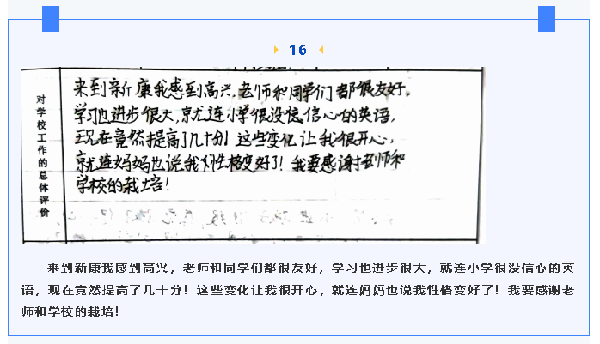 16
对学校工作的总体评价
来到新康我感到高兴，老师和同学们都很友好，
学习也进步很大，就连小学很没信心的英语，
现在竟然提高了几十分！这些变化让我很开心，
就连妈妈也说我性格变好了！我要感谢老师和
学校的栽培！
来到新康我感到高兴，老师和同学们都很友好，学习也进步很大，就连小学很没信心的英
语，现在竟然提高了几十分！这些变化让我很开心，就连妈妈也说我性格变好了！我要感谢老
师和学校的栽培！